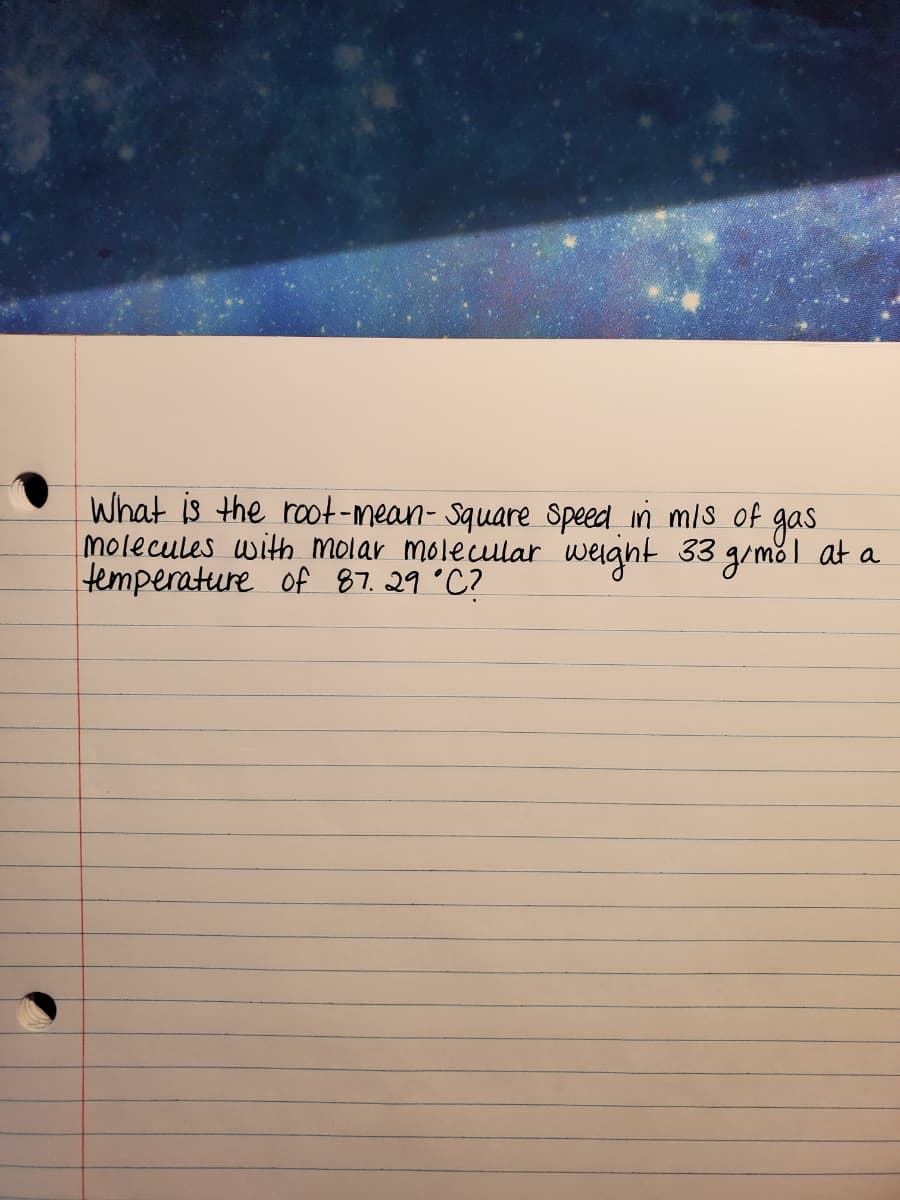 What is the root-mean-square speed in m/s of gas
molecules with molar molecular weight 33 g/mol at a
temperature of 87.29 °C?